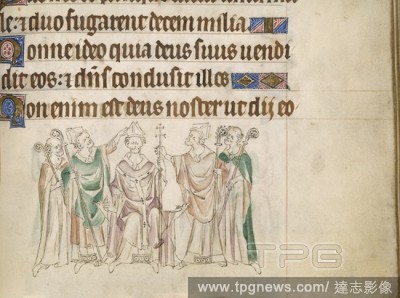 le: ⁊ duo fugarent decem milia.
Nonne ideo quia deus suus uendi
dit eos: ⁊ dñs conclusit illos
Non enim est deus noster ut dij eo
TPG
www.tpgnews.com/ 達志影像